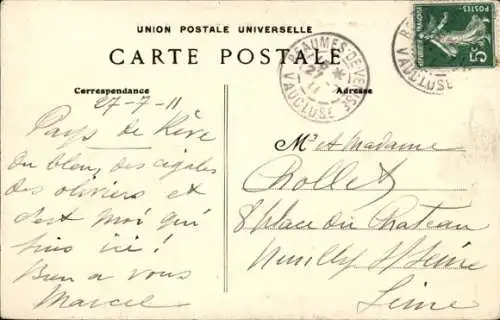 UNION POSTALE UNIVERSELLE
CARTE POSTALE
Correspondance
Adresse
BEAUMES-DE-VENISE
27
11
VAUCLUSE
VAUCLUSE
POSTES
5
27-7-11
Pays de Rêve
du bleu, des cigales
des oliviers et
c'est moi qui
suis ici!
Bien a vous
Marcel
Mr et Madame
Chollet
8 place du Chateau
Neuilly s/ Seine
Seine